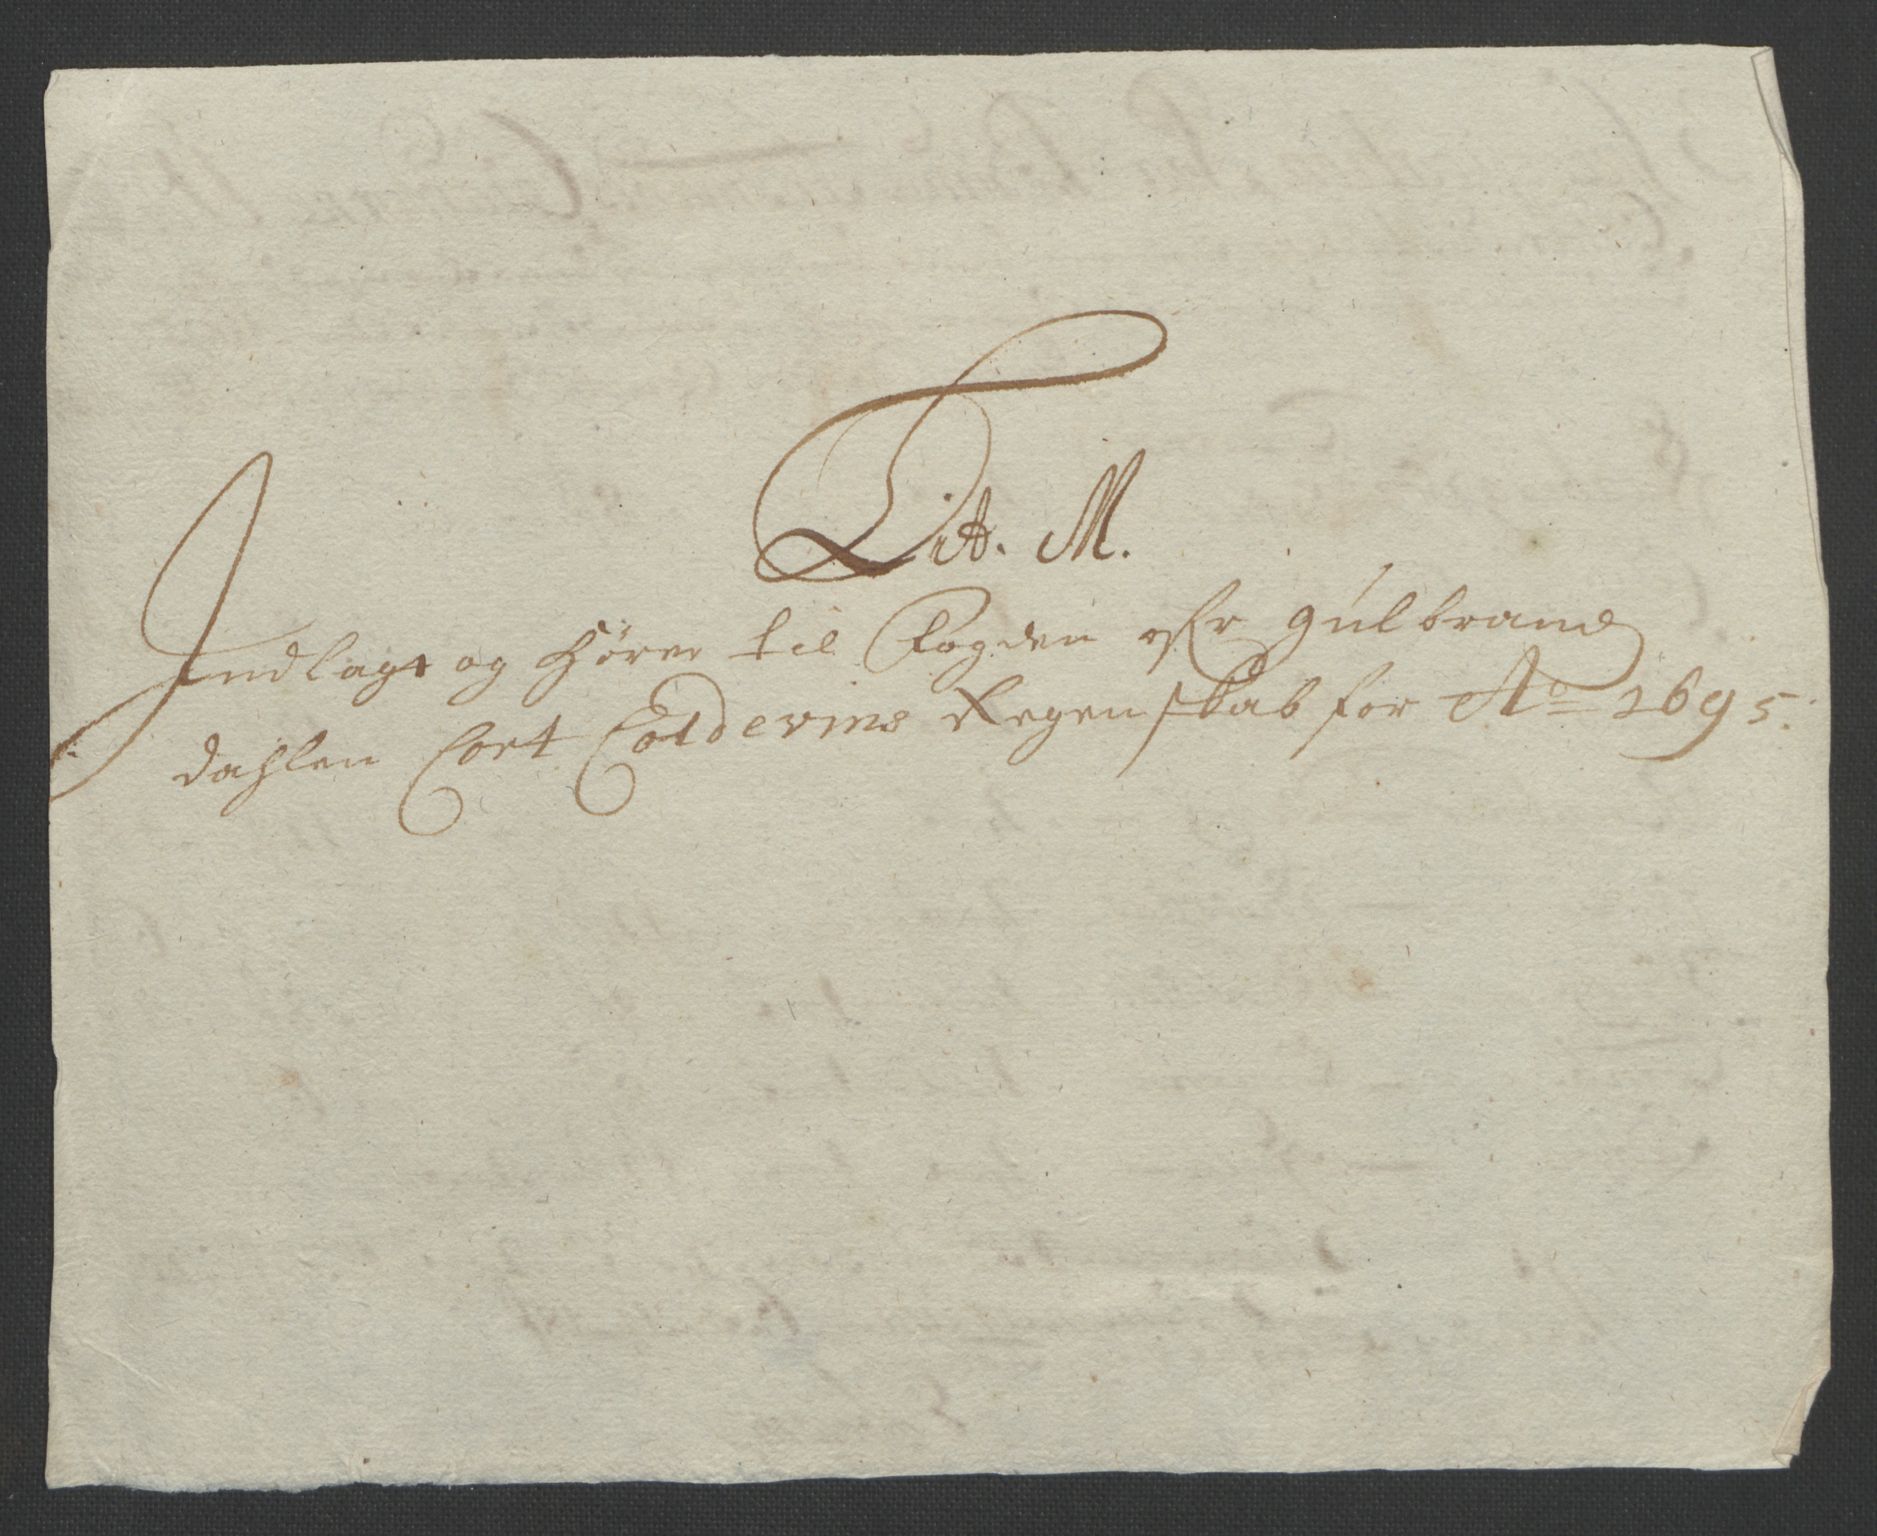 Lit. M.
Indlagt og hører til Fogden ofr gulbrands
dahlen Cort Coldevins Regenskab for Ao 1695.